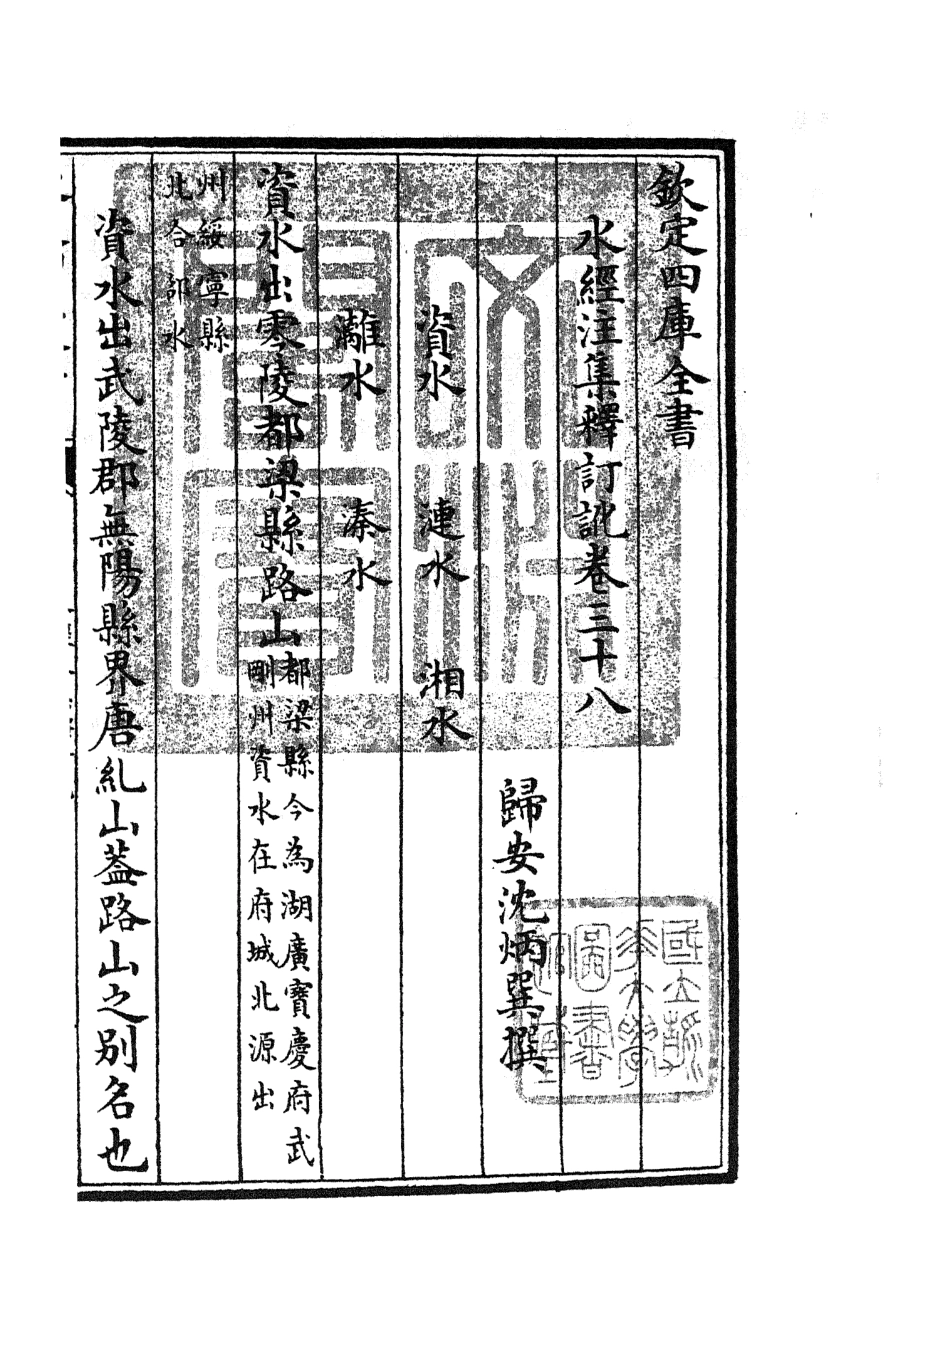 欽定四庫全書
水經注集釋訂訛卷三十八
歸安沈炳巽撰
資水　漣水　湘水
灕水　溱水
資水出零陵都梁縣路山都梁縣今為湖廣寶慶府武
剛州資水在府城北源出
州綏寧縣
北合邵水
資水出武陵郡無陽縣界唐糺山葢路山之別名也
國立
圖書